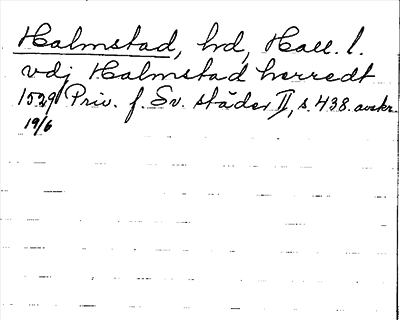 Halmstad, hd, Hall. l.
vdj Halmstad herredt
1529 Priv. f. Sv. städer II, s. 438. avskr.
19/6